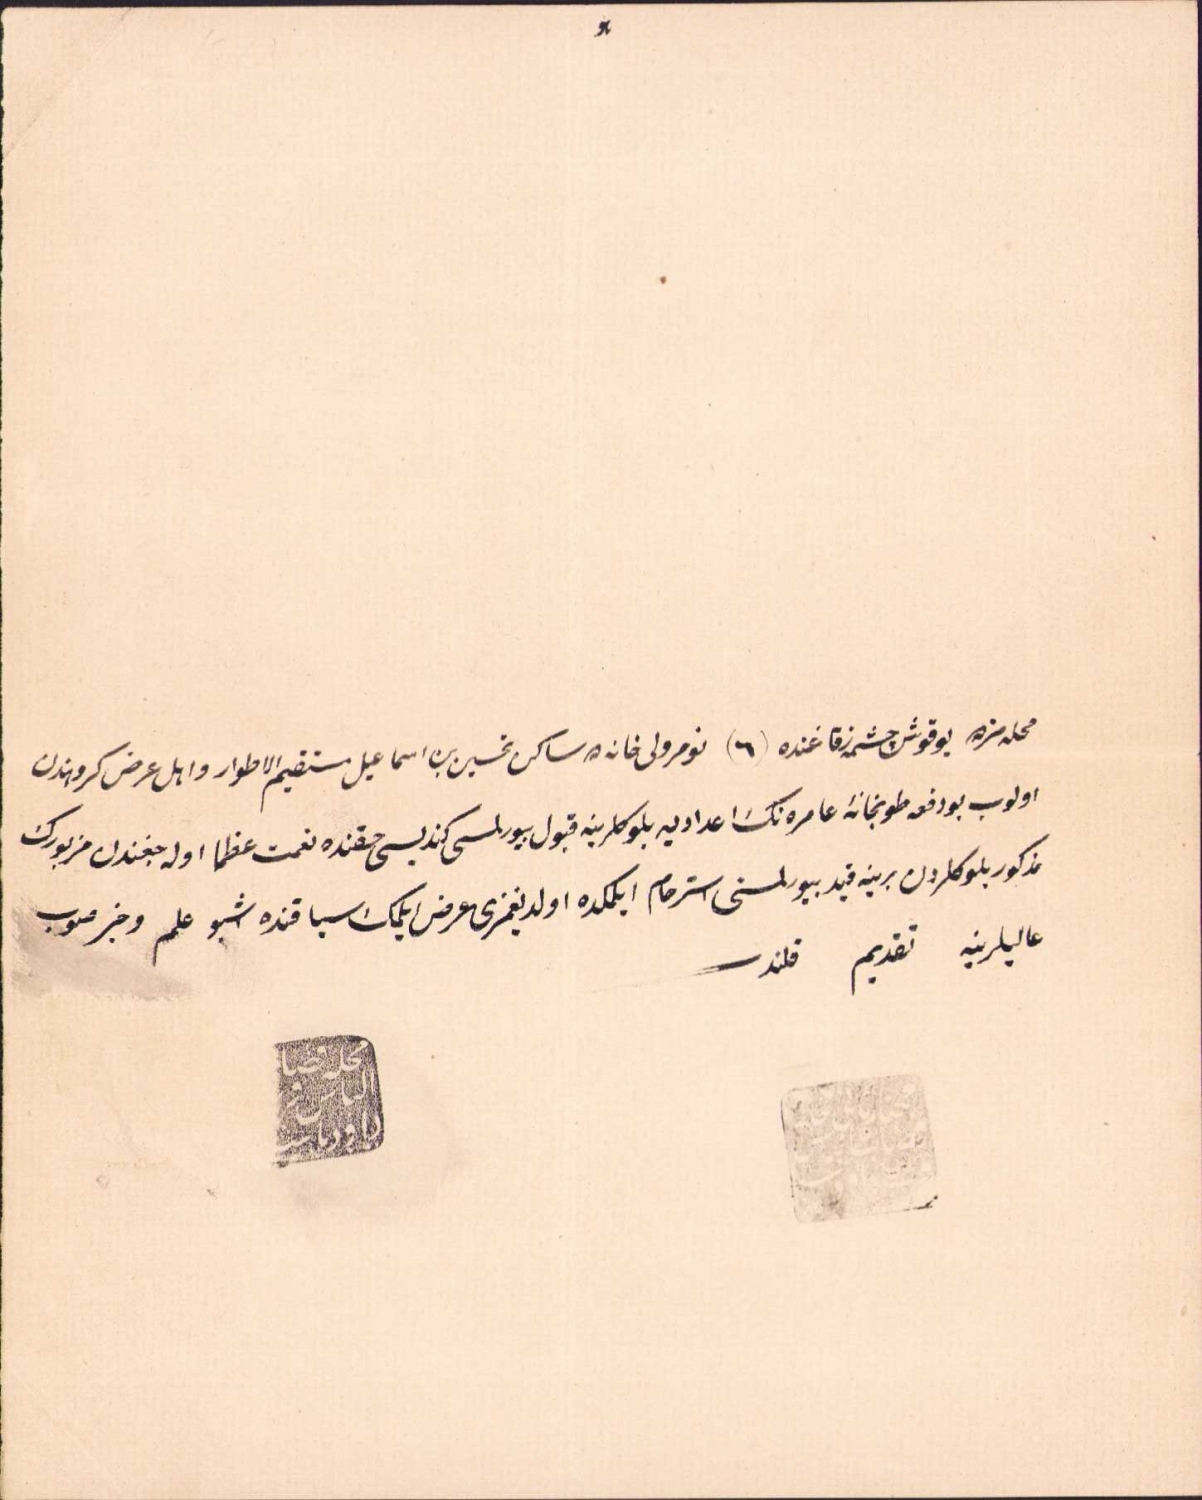 محله‌مزده یوقوش چشمه زقاغنده (٦) نومرولی خانه‌ده ساکن تحسین بن اسماعیل مستقیم الاطوار و اهل عرض کروهندن
اولوب بو دفعه طوبخانهٔ عامره‌نك اعدادیه بلوکلرینه قبول بیورلمسی کندیسی حقنده نعمت عظما اوله جغندن مزبورك
مذکور بلوکلردن برینه قید بیورلمسنی استرحام ایلمکده اولدیغمزی عرض ایلمك سیاقنده اشبو علم و خبر صوب
عالیلرینه تقدیم قلندی
محله قضا
الیاس
داود پاشا